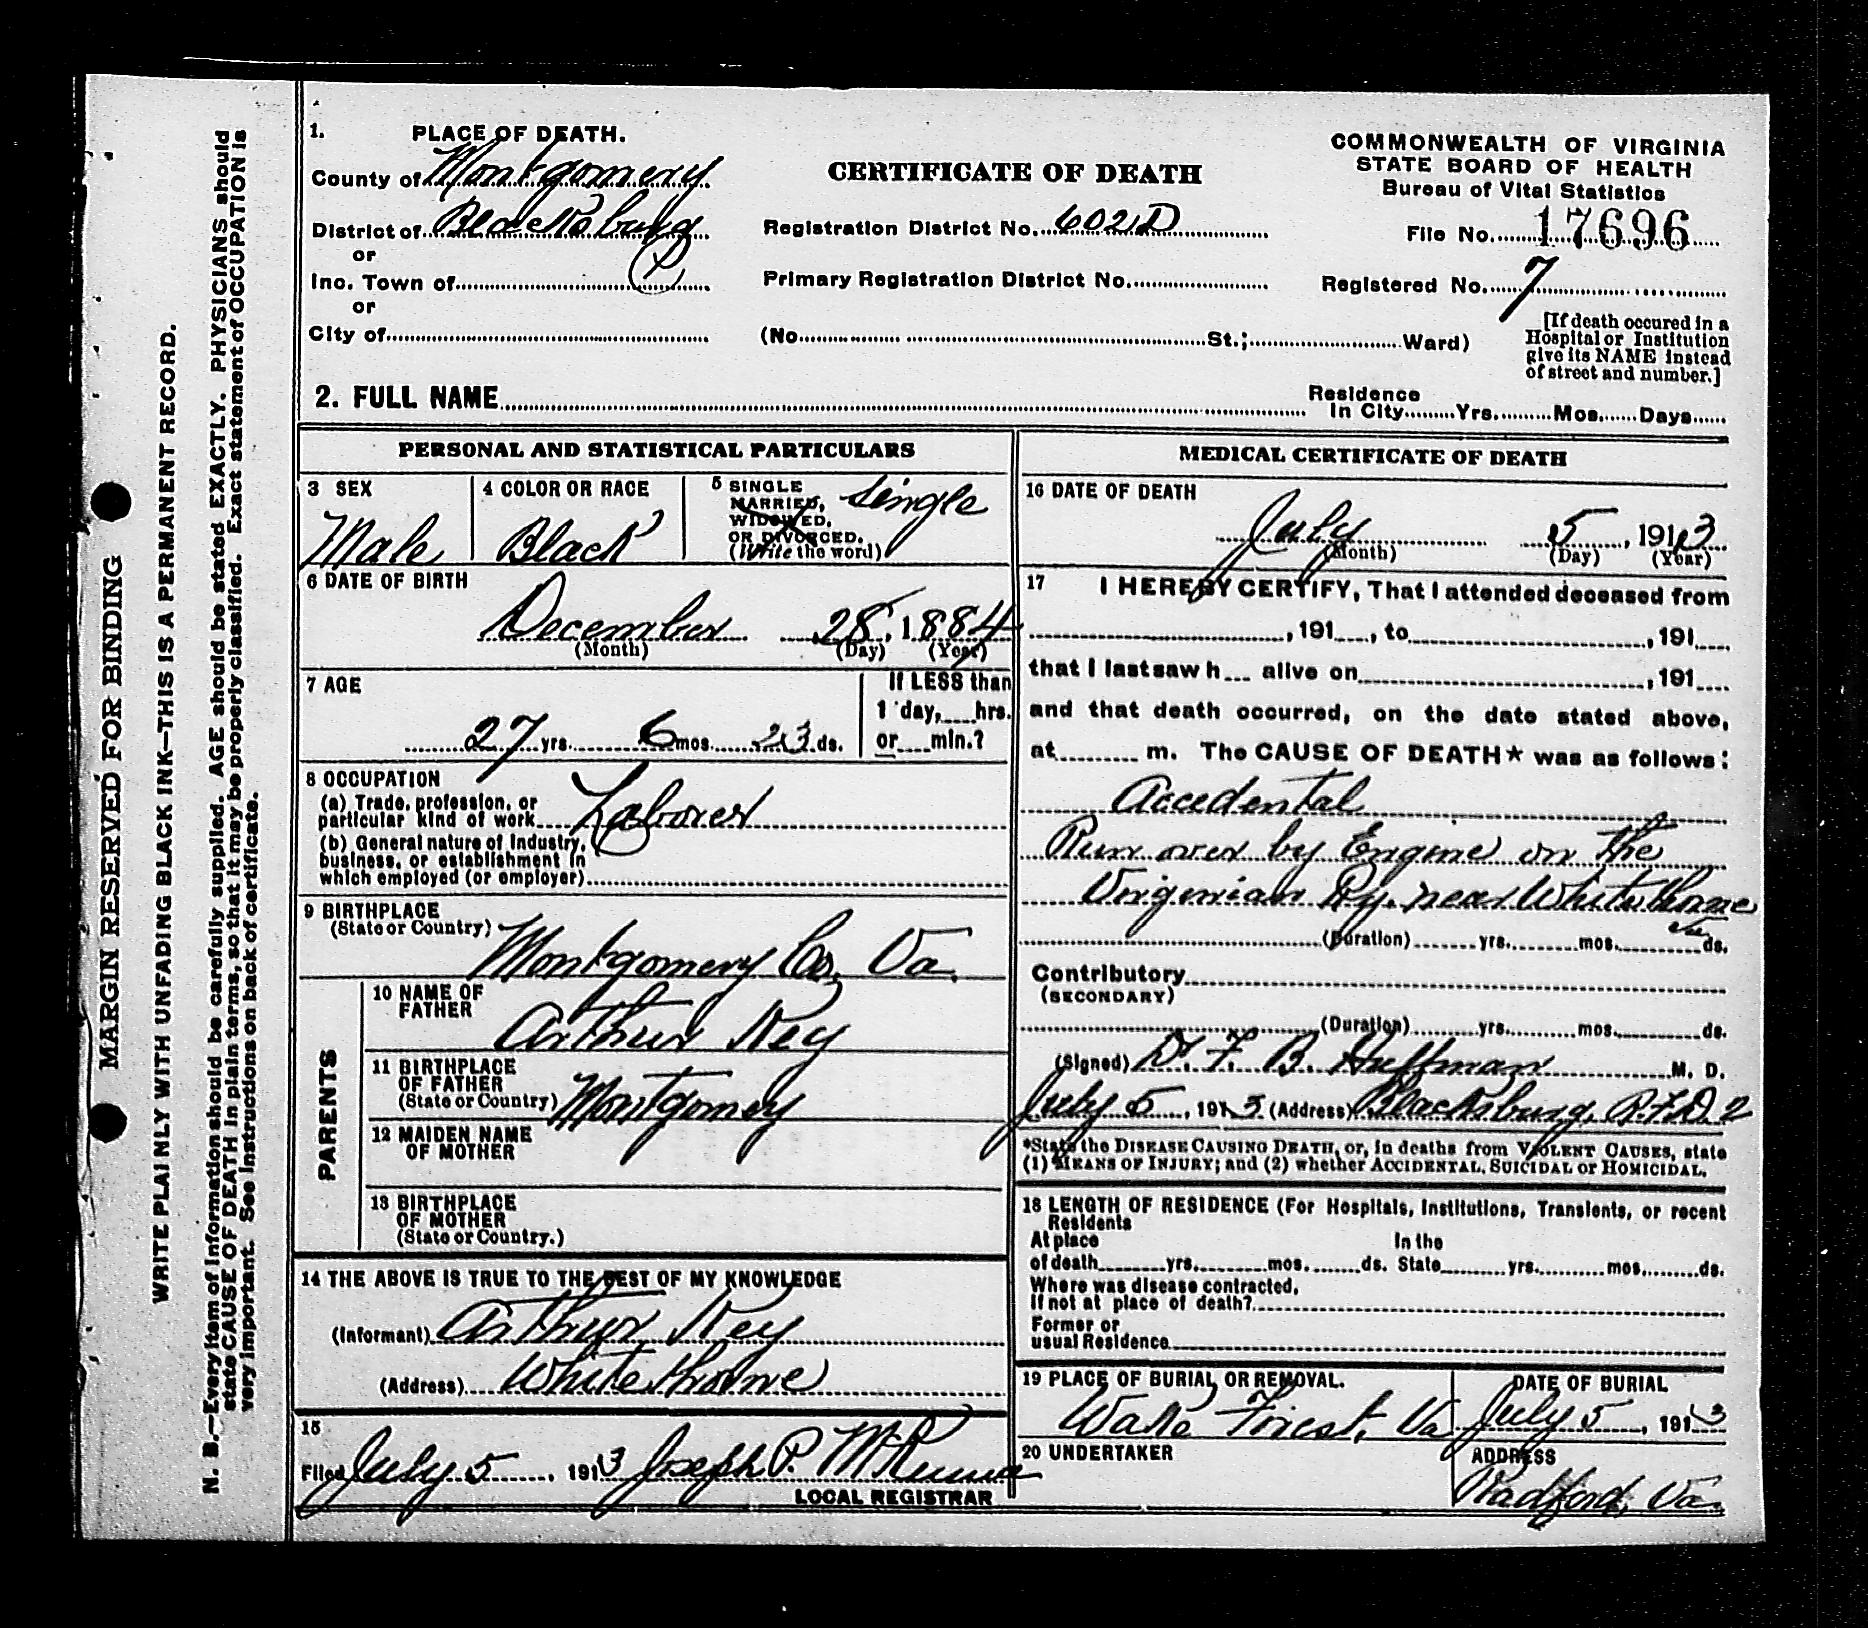 1. PLACE OF DEATH.
County of Montgomery
District of Blacksburg
or
Inc. Town of
or
City of
CERTIFICATE OF DEATH
Registration District No. 602D
Primary Registration District No.
(No. St.; Ward)
COMMONWEALTH OF VIRGINIA
STATE BOARD OF HEALTH
Bureau of Vital Statistics
File No. 17696
Registered No. 7
[If death occured in a
Hospital or Institution
give its NAME instead
of street and number.]
2. FULL NAME
Residence
In City Yrs. Mos. Days
PERSONAL AND STATISTICAL PARTICULARS
3 SEX
Male
4 COLOR OR RACE
Black
5 SINGLE
MARRIED,
WIDOWED,
OR DIVORCED.
(Write the word)
Single
6 DATE OF BIRTH
December 28, 1884
(Month) (Day) (Year)
7 AGE
27 yrs. 6 mos. 23 ds.
If LESS than
1 day, hrs.
or min.?
8 OCCUPATION
(a) Trade, profession, or
particular kind of work Laborer
(b) General nature of Industry,
business, or establishment in
which employed (or employer)
9 BIRTHPLACE
(State or Country)
Montgomery Co, Va.
PARENTS
10 NAME OF
FATHER
Arthur Key
11 BIRTHPLACE
OF FATHER
(State or Country) Montgomery
12 MAIDEN NAME
OF MOTHER
13 BIRTHPLACE
OF MOTHER
(State or Country.)
14 THE ABOVE IS TRUE TO THE BEST OF MY KNOWLEDGE
(Informant) Arthur Key
(Address) Whitethorne
15
Filed July 5, 1913 Joseph P.
LOCAL REGISTRAR
MEDICAL CERTIFICATE OF DEATH
16 DATE OF DEATH
July 5, 1913
(Month) (Day) (Year)
17 I HEREBY CERTIFY, That I attended deceased from
, 191 , to , 191
that I last saw h alive on , 191
and that death occurred, on the date stated above,
at m. The CAUSE OF DEATH* was as follows:
Accedental
Run over by Engine on the
Virginian Ry. near Whitethorne
Va
(Duration) yrs. mos. ds.
Contributory
(SECONDARY)
(Duration) yrs. mos. ds.
(Signed) D. F. B. Huffman M. D.
July 5, 1913 (Address) Blacksburg, R.F.D. 2
*State the DISEASE CAUSING DEATH, or, in deaths from VIOLENT CAUSES, state
(1) MEANS OF INJURY; and (2) whether ACCIDENTAL, SUICIDAL or HOMICIDAL.
18 LENGTH OF RESIDENCE (For Hospitals, Institutions, Transients, or recent
Residents
At place In the
of death yrs. mos. ds. State yrs. mos. ds.
Where was disease contracted,
If not at place of death?
Former or
usual Residence
19 PLACE OF BURIAL OR REMOVAL.
Wake Forest, Va
DATE OF BURIAL
July 5, 1913
20 UNDERTAKER
ADDRESS
Radford, Va.
MARGIN RESERVED FOR BINDING
WRITE PLAINLY WITH UNFADING BLACK INK—THIS IS A PERMANENT RECORD.
N. B.—Every item of information should be carefully supplied. AGE should be stated EXACTLY. PHYSICIANS should
state CAUSE OF DEATH in plain terms, so that it may be properly classified. Exact statement of OCCUPATION is
very important. See instructions on back of certificate.